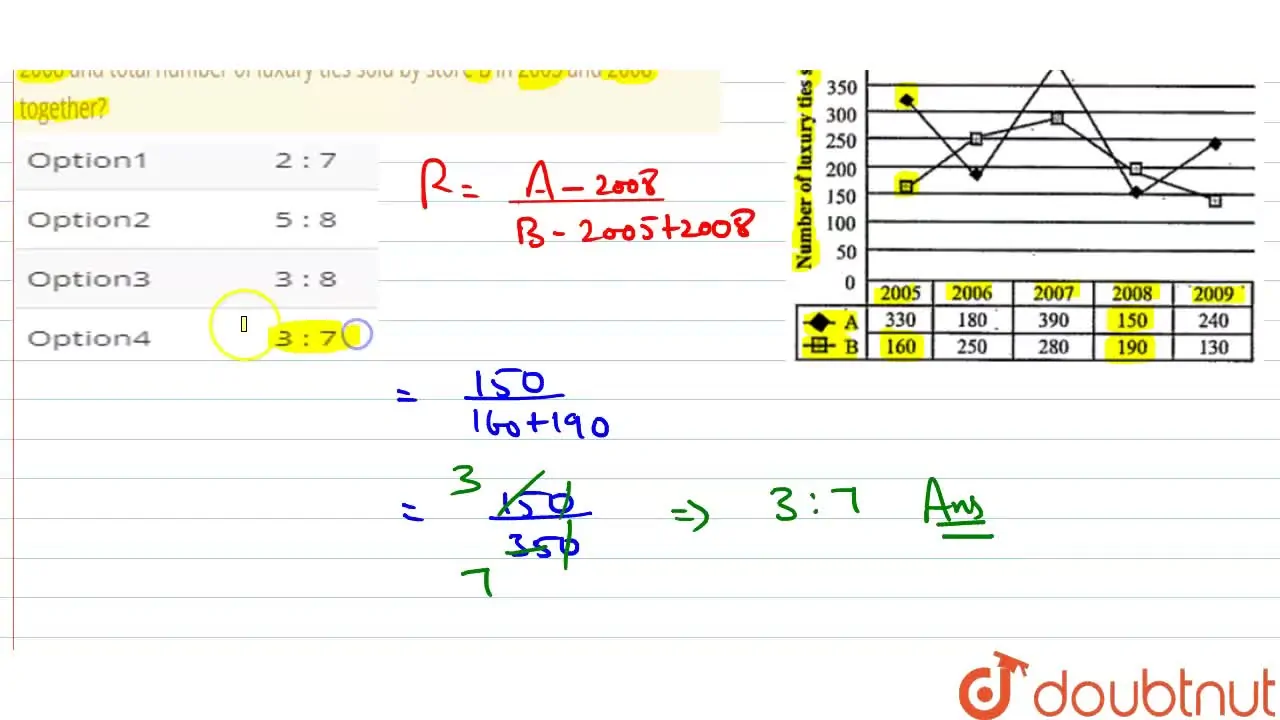 2008 and total number of luxury ties sold by store B in 2005 and 2008
together?
Option1 2 : 7
Option2 5 : 8
Option3 3 : 8
Option4 3 : 7
R = A - 2008
B - 2005+2008
= 150
160+190
= 3 150
350
7
=> 3 : 7 Ans
Number of luxury ties s
350
300
250
200
150
100
50
0
2005 2006 2007 2008 2009
A 330 180 390 150 240
B 160 250 280 190 130
doubtnut